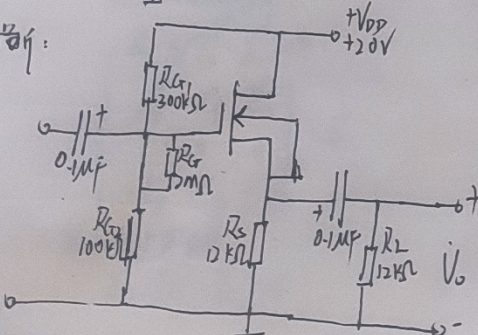 所:
+VDD
+20V
RG1
300kΩ
+
0.1μF
RG
2MΩ
RG2
100kΩ
RS
12kΩ
+
0.1μF
RL
12kΩ
+
U̇o
-